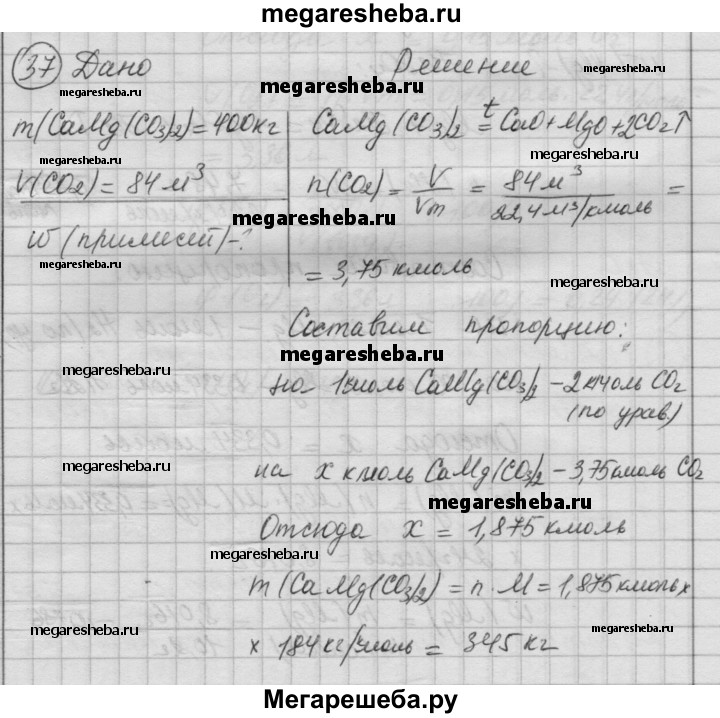 megaresheba.ru
37 Дано Решение
megaresheba.ru
m(CaMg(CO₃)₂)=400кг CaMg(CO₃)₂ =ᵗ CaO+MgO+2CO₂↑
megaresheba.ru
V(CO₂)=84м³ n(CO₂)= V/Vm = 84м³/22,4м³/кмоль =
megaresheba.ru
w(примесей)-?
megaresheba.ru
= 3,75 кмоль
megaresheba.ru
Составим пропорцию:
megaresheba.ru
megaresheba.ru
на 1кмоль CaMg(CO₃)₂ – 2 кмоль CO₂
(по урав.)
на x кмоль CaMg(CO₃)₂ – 3,75 кмоль CO₂
megaresheba.ru
Отсюда x = 1,875 кмоль
megaresheba.ru
m(CaMg(CO₃)₂) = n·M = 1,875 кмоль x
megaresheba.ru
x 184 кг/кмоль = 345 кг
megaresheba.ru
megaresheba.ru
Мегарешеба.ру